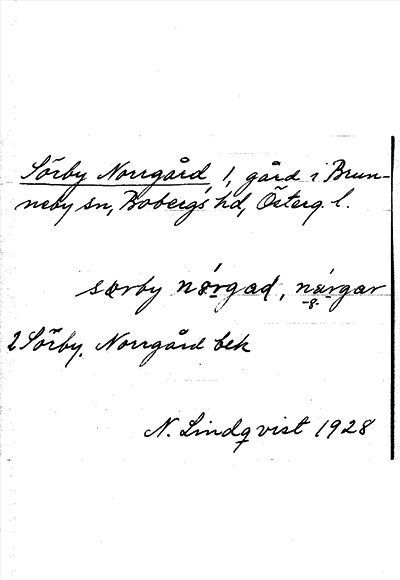 Sörby Norrgård, 1, gård i Brun-
neby sn, Bobergs hd, Österg. l.
særby nørgad, nørgar
-8-
2 Sörby, Norrgård bek
N. Lindqvist 1928